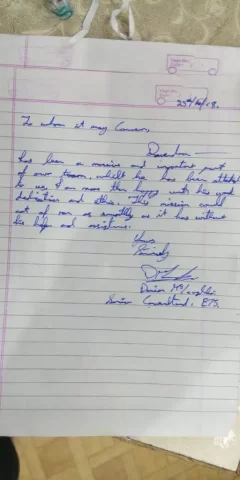 25th/4/18.
To whom it may Concern,
has been a massive and important part
of our team, whilst he has been attached
to us. I am more than happy with his work
dedication and ethic. This mission could
not of run as smoothly as it has without
his hope and assistance.
Yours
Sincerely
Senior Consultant,